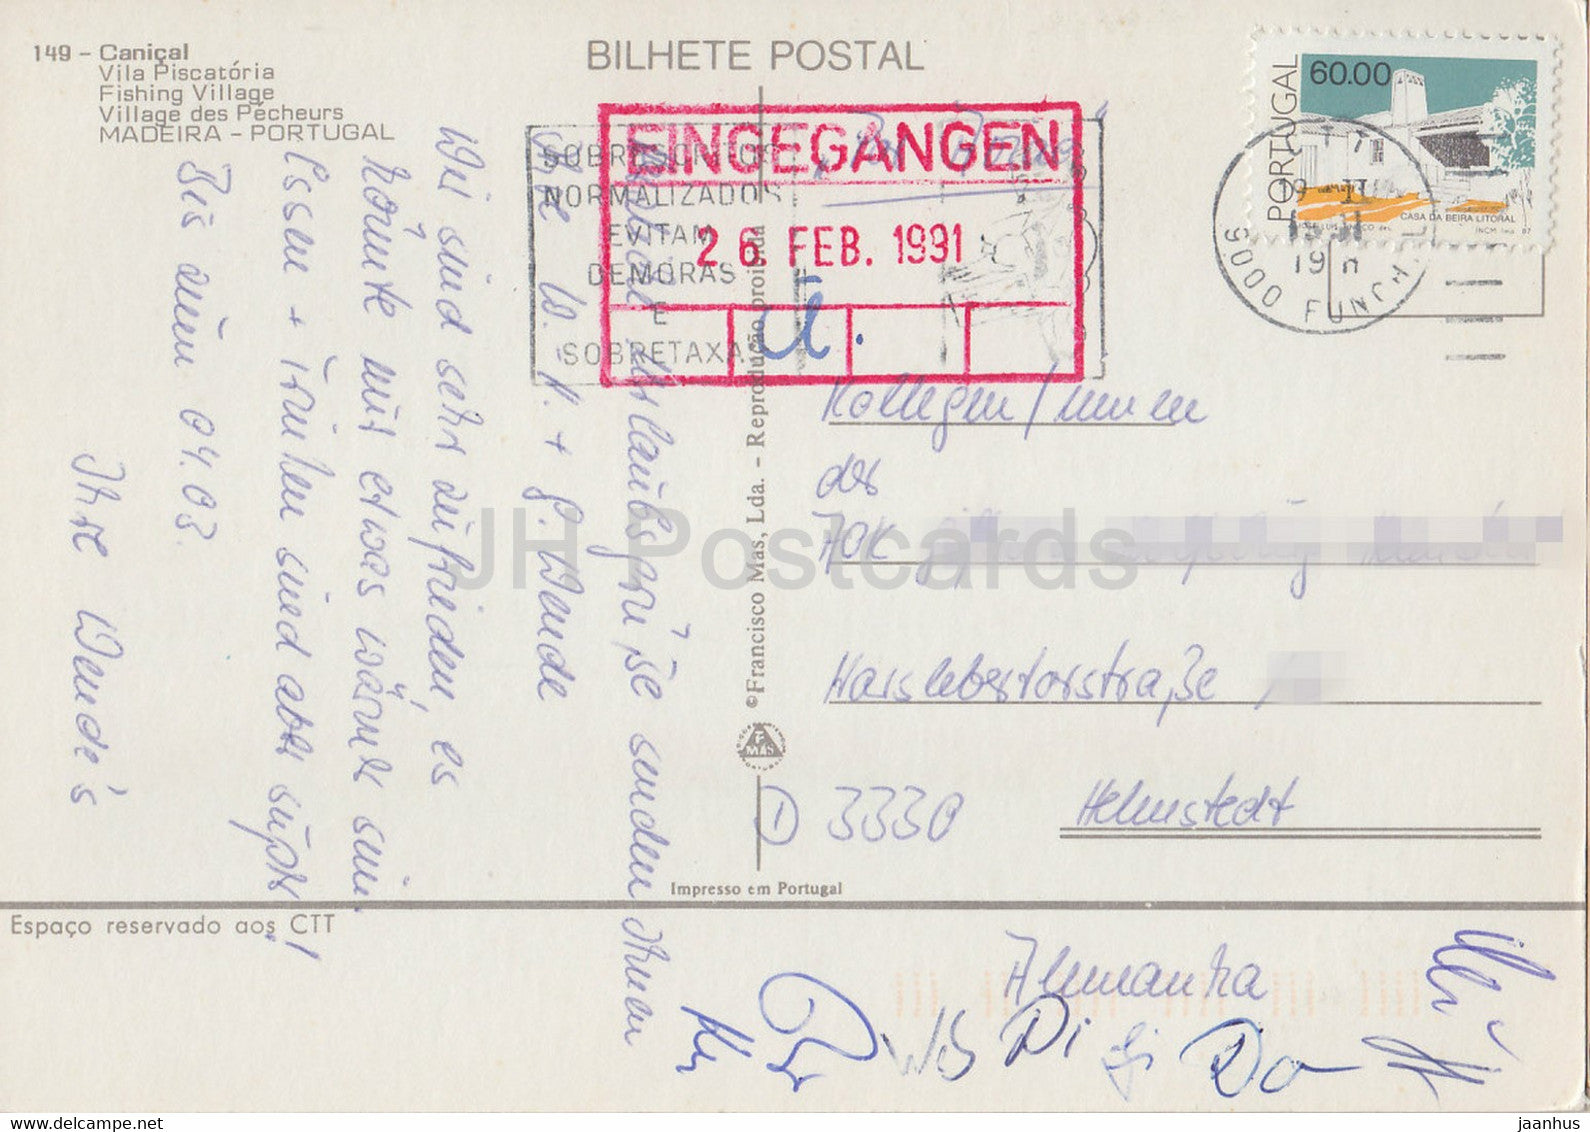 149 - Caniçal
Vila Piscatória
Fishing Village
Village des Pêcheurs
MADEIRA - PORTUGAL
BILHETE POSTAL
PORTUGAL
60.00
CASA DA BEIRA LITORAL
INCM
9000 FUNCHAL
EINGEGANGEN
26 FEB. 1991
SOBRESCRITOS
NORMALIZADOS
EVITAM
DEMORAS
E
SOBRETAXA
ü.
Urlaubsgrüße senden Ihnen
W. H. + G. Wende
Wir sind sehr zufrieden, es
könnte nur etwas wärmer sein.
Essen + Trinken sind aber super!
Bis zum 04.03.
Ihre Wende's
©Francisco Mas, Lda. - Reprodução proibida
F
MAS
Impresso em Portugal
Kollegen/innen
der
AOK
Harsleberstorstraße
1 3330 Helmstedt
Espaço reservado aos CTT
Alemanha
Di
Do
JH Postcards
www.delcampe.net
jaanhus